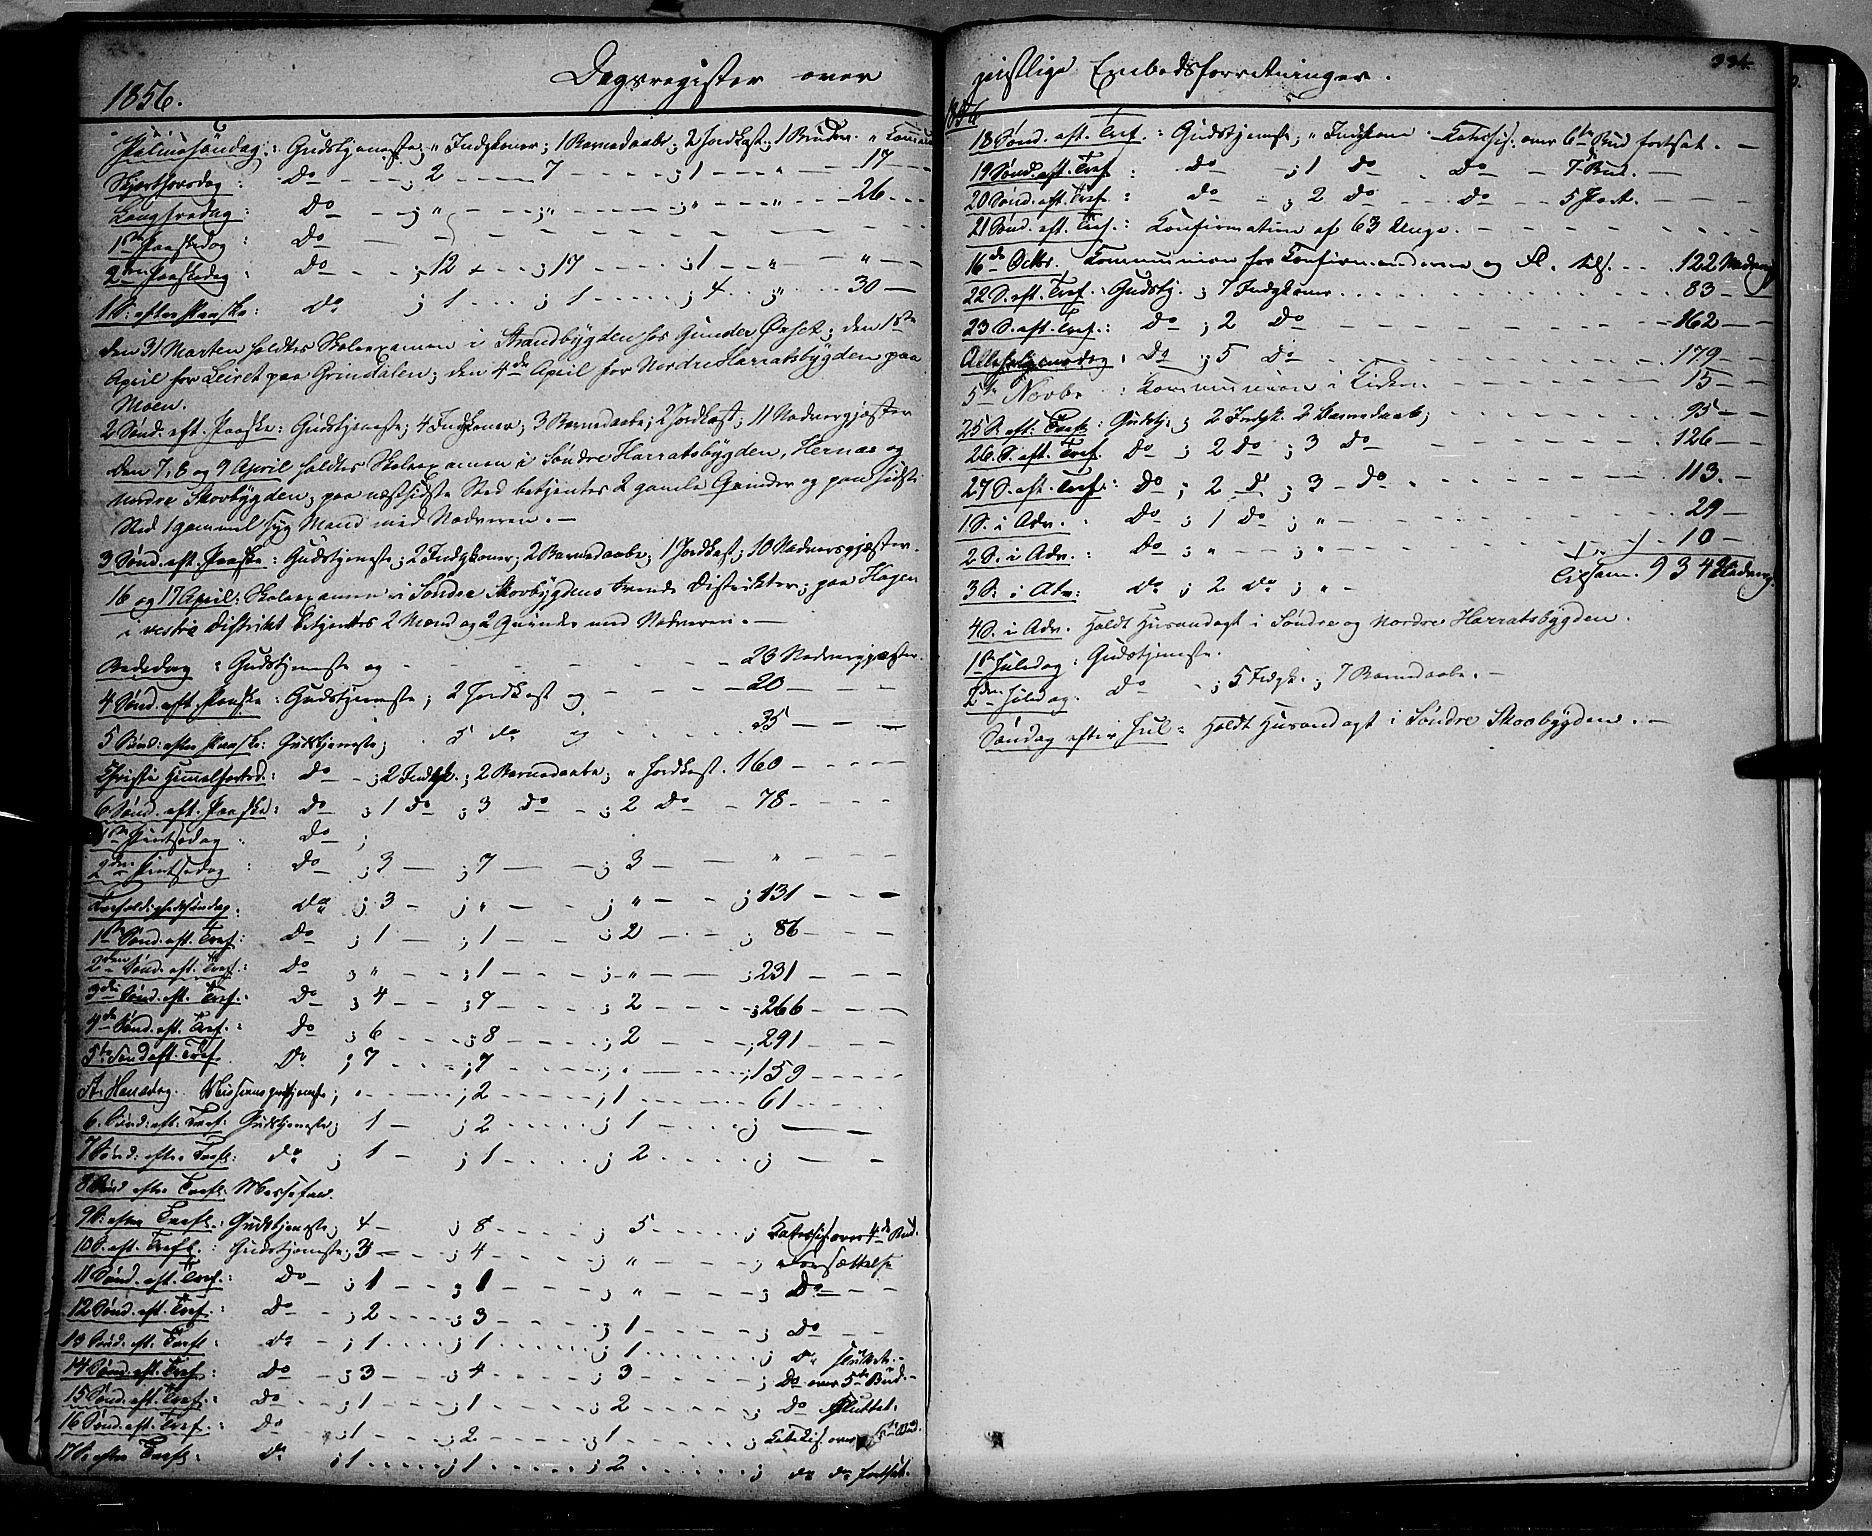 Dagsregister over geistlige Embedsforretninger.
334.
1856.
Palmesøndag: Gudstjeneste; „ Indgkoner; 1 Barnedaab; 2 Jordkast; 1 Brudev.
Skjærthorsdag: Do – ; 2 – 7 – ; 1 – „ – 17 –
Langfredag: Do – ; „ – ; „ – ; „ – „ – 26 –
1ste Paaskedag: Do –
2den Paaskedag: Do – ; 12 – ; 17 – ; 1 – „ – „ –
1 S: efter Paaske: Do ; 1 – ; 1 – ; 4 – „ – 30 –
Den 31 Marten holdtes Skoleexamen i Strandbygden hos Gunder Øxset; den 1ste
April for Leiret paa Grindalen; den 4de April for Nordre Harratsbygden paa
Moen.
2 Sønd. eft. Paaske: Gudstjeneste; 4 Indgkoner; 3 Barnedaabe; 2 Jordkast; 11 Nadvergjæster
Den 7, 8 og 9 April holdtes Skoleexamen i Søndre Harratsbygden, Hernæs og
Nordre Skovbygden; paa næstsidste Sted betjentes 2 gamle Qvinder og paa sidste
Sted 1 gammel syg Mand med Nadveren. –
3 Sønd. eft. Paaske: Gudstjeneste; 2 Indgkoner; 2 Barnedaabe; 1 Jordkast; 10 Nadvergjæster.
16 og 17 April: Skoleexamen i Søndre Skovbygdens trende Distrikter; paa Hagen
i vestre Distrikt betjentes 2 Mænd og 2 Qvinder med Nadveren. –
Bededag: Gudstjeneste og – 23 Nadvergjæster.
4 Sønd. eft. Paaske: Gudstjeneste; 2 Jordkast og – 20 –
5 Sønd: efter Paaske: Gudstjeneste; 5 do og – 35 –
Christi Himmelfartsd.: Do – ; 2 Indgk.; 2 Barnedaabe; „ Jordkast. 160 –
6 Sønd. eft. Paaske: Do ; 1 do ; 3 do – ; 2 Do – 78 –
1ste Pintsedag: Do ;
2den Pintsedag: Do ; 3 – ; 7 – ; 3 – „ –
Trefoldighedssøndag: Do ; 3 – ; „ – ; „ – ; 131 –
1ste Sønd. eft. Tref: Do ; 1 – ; 1 – ; 2 – ; 86 –
2den Sønd. eft. Tref.: Do ; „ – ; 1 – ; „ – ; 231 –
3die Sønd. eft. Tref.: Do ; 4 – ; 7 – ; 2 – ; 266 –
4de Sønd. eft. Tref.: Do ; 6 – ; 8 – ; 2 – ; 291 –
5te Sønd eft. Tref. Do ; 7 – ; 7 – ; „ – ; 159 –
St. Hansdag. Missionsgudstjeneste; „ – ; 2 – ; 1 – 61 –
6. Sønd: eft. Tref: Gudstjeneste; 1 – ; 2 – ; 1 – ; –
7 Sønd: efter Trefk: do ; 1 – ; 1 – ; 2 – ; –
8 Sønd efter Trefk: Messefald.
9 S: efter Trefk.: Gudstjeneste; 4 – ; 8 – ; 5 – ; Katechis. over 4de Bud.
10 S. eft. Trefk.: Gudstjeneste; 3 – ; 4 – ; „ – ; Forsættelse
11 Sønd. eft. Tref: Do ; 1 – ; 1 – ; „ – ; Do –
12 Sønd. eft. Tref.: Do – ; 2 – ; 3 – ; 1 – ; Do –
13 Sønd: eft. Trefk do – ; 1 – ; 1 – ; 1 – ; do
14 Sønd. eft. Tref: Do – ; 3 – ; 4 – ; 3 – ; Do over 5te Bud –
15 Sønd. eft. Tref: Do – ; 1 – ; 1 – ; 2 – ; Do sluttet.
16 Sønd. eft. Tref.: Do – ; 1 – ; 2 – ; 1 – ; Katekis. over 6te Bud.
17 S: efter Trefk: do ; 1 – ; 1 – ; 2 – ; do do fortsat.
1856
18 Sønd. eft. Tref.: Gudstjeneste; „ Indgkone Katechis. over 6te Bud fortsat. –
19 Sønd. eft. Tref: Do – ; 1 Do . Do – 7 Bud. –
20 Sønd. eft. Tref: do – ; 2 Do – Do – 5 Part. –
21 Sønd. eft. Tref.: Konfirmation af 63 Unge. –
16de Octbr. Kommunion for Konfirmanderne og Fl. tils. – 122 Nadverg
22 S. eft. Tref.: Gudstj. ; 7 Indgkoner – 83 –
23 S. eft. Tref.: Do ; 2 Do – 162 –
Allehelgensdag: Do ; 5 Do – 179 –
5te Novbr: Kommunion i Kirken – 15 –
25 S. eft. Tref: Gudstj.; 2 Indgk. 2 Barnedaab; – 95 –
26. S. eft. Tref. Do ; 2 Do ; 3 Do – 126 –
27 S. eft. Tref.: Do ; 2 Do ; 3 – Do – 113. –
1 S. i Adv.: Do ; 1 Do ; „ – 29 –
2 S. i Adv.: Do ; „ – ; „ – 10 –
3 S. i Adv: do ; 2 do ; „ – Tilsam. 934 Nadverg
4 S. i Adv. Holdt Husandagt i Søndre og Nordre Harratsbygden.
1ste Juledag: Gudstjeneste.
2den Juledag. Do – ; 5 Indgk. ; 7 Barnedaabe. –
Søndag efter Jul: Holdt Husandagt i Søndre Skovbygden. –